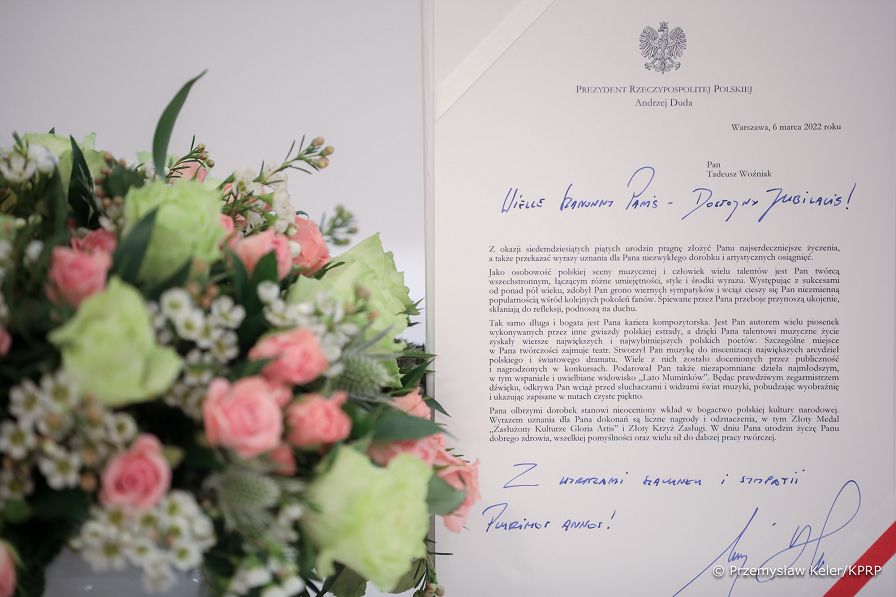 PREZYDENT RZECZYPOSPOLITEJ POLSKIEJ
Andrzej Duda
Warszawa, 6 marca 2022 roku
Pan
Tadeusz Woźniak
Wielce Szanowny Panie - Dostojny Jubilacie!
Z okazji siedemdziesiątych piątych urodzin pragnę złożyć Panu najserdeczniejsze życzenia,
a także przekazać wyrazy uznania dla Pana niezwykłego dorobku i artystycznych osiągnięć.
Jako osobowość polskiej sceny muzycznej i człowiek wielu talentów jest Pan twórcą
wszechstronnym, łączącym różne umiejętności, style i środki wyrazu. Występując z sukcesami
od ponad pół wieku, zdobył Pan grono wiernych sympatyków i wciąż cieszy się Pan niezmienną
popularnością wśród kolejnych pokoleń fanów. Śpiewane przez Pana przeboje przynoszą ukojenie,
skłaniają do refleksji, podnoszą na duchu.
Tak samo długa i bogata jest Pana kariera kompozytorska. Jest Pan autorem wielu piosenek
wykonywanych przez inne gwiazdy polskiej estrady, a dzięki Pana talentowi muzyczne życie
zyskały wiersze największych i najwybitniejszych polskich poetów. Szczególne miejsce
w Pana twórczości zajmuje teatr. Stworzył Pan muzykę do inscenizacji największych arcydzieł
polskiego i światowego dramatu. Wiele z nich zostało docenionych przez publiczność
i nagrodzonych w konkursach. Podarował Pan także niezapomniane dzieła najmłodszym,
w tym wspaniałe i uwielbiane widowisko „Lato Muminków”. Będąc prawdziwym zegarmistrzem
dźwięku, odkrywa Pan wciąż przed słuchaczami i widzami świat muzyki, pobudzając wyobraźnię
i ukazując zapisane w nutach czyste piękno.
Pana olbrzymi dorobek stanowi nieoceniony wkład w bogactwo polskiej kultury narodowej.
Wyrazem uznania dla Pana dokonań są liczne nagrody i odznaczenia, w tym Złoty Medal
„Zasłużony Kulturze Gloria Artis” i Złoty Krzyż Zasługi. W dniu Pana urodzin życzę Panu
dobrego zdrowia, wszelkiej pomyślności oraz wielu sił do dalszej pracy twórczej.
Z wyrazami szacunku i sympatii
Plurimos annos!
© Przemysław Keler/KPRP